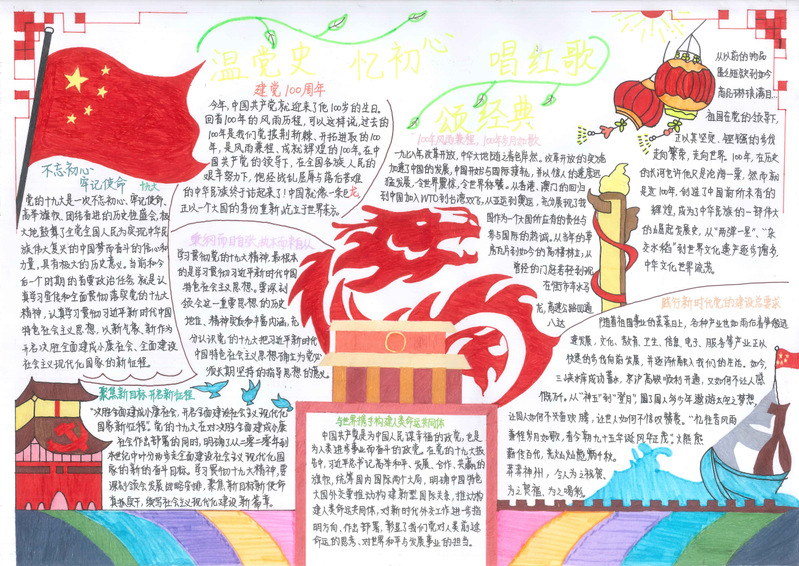 温党史 忆初心 唱红歌
颂经典
建党100周年
今年,中国共产党就迎来了他100岁的生日.
回看100年的风雨历程,可以这样说,过去的
100年是我们党披荆斩棘、开拓进取的100
年,是风雨兼程、成就辉煌的100年.在中
国共产党的领导下,在全国各族人民的
艰辛努力下,饱经战乱屈辱与落后苦难
的中华民族终于站起来了!中国就像一条巨龙,
正以一个大国的身份重新屹立于世界东方。
不忘初心
牢记使命
十九大
党的十九大是一次不忘初心、牢记使命、
高举旗帜、团结奋进的历史性盛会,极
大地鼓舞了全党全国人民为实现中华民
族伟大复兴的中国梦而奋斗的信心和
力量,具有极大的历史意义。当前和今
后一个时期的首要政治任务,就是认
真学习宣传和全面贯彻落实党的十九大
精神,认真学习贯彻习近平新时代中国
特色社会主义思想,以新气象、新作为
开启决胜全面建成小康社会、全面建设
社会主义现代化国家的新征程.
学习贯彻党的十九大精神,最根本
的是学习贯彻习近平新时代中国
特色社会主义思想。要深刻
领会这一重要思想的历史
地位、精神实质和丰富内涵,充
分认识党的十九大把习近平新时代
中国特色社会主义思想确立为党必
须长期坚持的指导思想的意义。
聚焦新目标 开启新征程
"决胜全面建成小康社会,开启全面建设社会主义现代化
国家新征程"。党的十九大在对决胜全面建成小康
社会作出部署的同时,明确了从二零二零年到
本世纪中叶分两步走全面建设社会主义现代化国
家的新的奋斗目标。学习贯彻十九大精神,要
深刻领会发展战略安排,聚焦新目标新使命
真抓实干,续写社会主义现代化建设新篇章。
与世界携手构建人类命运共同体
中国共产党是为中国人民谋幸福的政党,也是
为人类进步事业而奋斗的政党。在党的十九大报
告,习近平总书记高举和平、发展、合作、共赢的
旗帜,统筹国内国际两个大局,明确中国特色
大国外交要推动构建新型国际关系,推动构
建人类命运共同体,对新时代外交工作进一步指
明方向,作出部署,彰显了我们党对人类前途
命运的思考、对世界和平与发展事业的担当。
100年风雨兼程,100年岁月如歌
一九七八年改革开放,中华大地随之春色斧然。改革开放的政策
加速了中国的发展,中国开始与国际接轨,并以惊人的速度迅
猛发展,令世界震惊,令世界称赞。从香港、澳门的回归
到中国加入WTO到台湾双飞,从亚运到奥运,充分展现了我
国作为一个国际所应有的责任与
参与国际的热诚。从当年的平
房瓦片到如今的高楼林立,从
曾经的门庭若轻到现
在的门市车水马
龙,高速公路四通
八达
从以前的物品
匮乏短缺到如今
商品琳琅满目…
祖国在党的领导下,
正以其坚定、铿锵的步伐
走向繁荣,走向世界。100年,在历史
的长河也许他只是沧海一粟,然而就
是这100年,创造了中国前所未有的
辉煌,成为了中华民族的一部伟大
的崛起发展史,从"两弹一星"、"杂
交水稻"到世界文化遗产逐步增多,
中华文化世界流芳。
践行新时代党的建设总要求
随着祖国事业的蒸蒸日上,各种产业也如雨后春笋般迅
速发展,文化、教育、卫生、信息、电子、服务等产业正以
快速的步伐向前发展,并逐渐涌入我们的生活。如今,
三峡水库成功蓄水,京沪高铁顺利开通,又如何不让人感
慨万千。从"神五"到"嫦娥",圆了国人多少年遨游太空之梦想,
让国人如何不失言欢腾,让世人如何不惊叹赞赏。"忆往昔风雨
兼程岁月如歌,看今朝九十五华诞风华正茂."火熊熊
莽莽神州,今人为之祝赞、
为之祝福、为之喝彩。